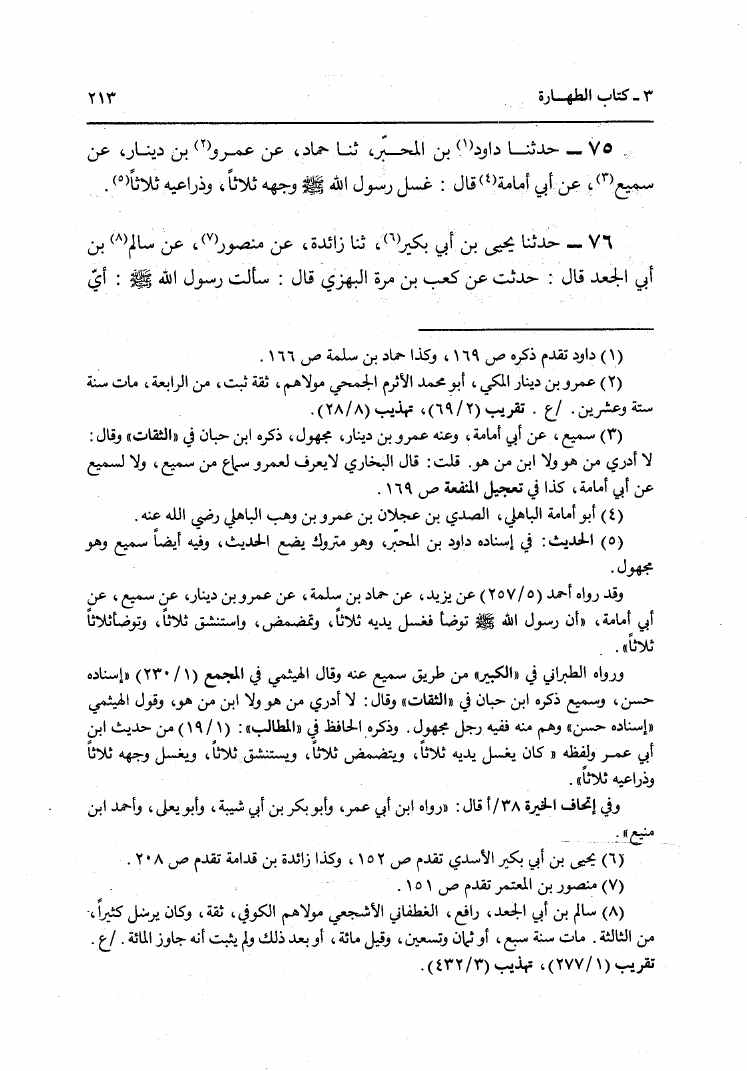 ٣ ـ كتاب الطهـارة ٢١٣
٧٥ ــ حدثنــا داود(١) بن المحــبّر، ثنـا حماد، عن عمـرو(٢) بن دينـار، عن
سميع(٣)، عن أبي أمامة(٤) قال : غسل رسول الله ﷺ وجهه ثلاثاً، وذراعيه ثلاثاً(٥).
٧٦ ــ حدثنا يحيى بن أبي بكير(٦)، ثنا زائدة، عن منصور(٧)، عن سالم(٨) بن
أبي الجعد قال : حدثت عن كعب بن مرة البهزي قال : سألت رسول الله ﷺ : أيّ
(١) داود تقدم ذكره ص ١٦٩، وكذا حماد بن سلمة ص ١٦٦.
(٢) عمرو بن دينار المكي، أبو محمد الأثرم الجمحي مولاهم، ثقة ثبت، من الرابعة، مات سنة
ستة وعشرين. /ع . تقريب (٦٩/٢)، تهذيب (٢٨/٨).
(٣) سميع، عن أبي أمامة، وعنه عمرو بن دينار، مجهول، ذكره ابن حبان في «الثقات» وقال:
لا أدري من هو ولا ابن من هو. قلت: قال البخاري لايعرف لعمرو سماع من سميع، ولا لسميع
عن أبي أمامة، كذا في تعجيل المنفعة ص ١٦٩.
(٤) أبو أمامة الباهلي، الصدي بن عجلان بن عمرو بن وهب الباهلي رضي الله عنه.
(٥) الحديث: في إسناده داود بن المحبّر، وهو متروك يضع الحديث، وفيه أيضاً سميع وهو
مجهول.
وقد رواه أحمد (٢٥٧/٥) عن يزيد، عن حماد بن سلمة، عن عمرو بن دينار، عن سميع، عن
أبي أمامة، «أن رسول الله ﷺ توضأ فغسل يديه ثلاثاً، وتمضمض، واستنشق ثلاثاً، وتوضأثلاثاً
ثلاثاً».
ورواه الطبراني في «الكبير» من طريق سميع عنه وقال الهيثمي في المجمع (٢٣٠/١) «إسناده
حسن، وسميع ذكره ابن حبان في «الثقات» وقال: لا أدري من هو ولا ابن من هو، وقول الهيثمي
«إسناده حسن» وهم منه ففيه رجل مجهول. وذكره الحافظ في «المطالب»: (١٩/١) من حديث ابن
أبي عمـر ولفظه « كان يغسل يديه ثلاثاً، ويتضمض ثلاثاً، ويستنشق ثلاثاً، ويغسل وجهه ثلاثاً
وذراعيه ثلاثاً».
وفي إتحاف الخيرة ٣٨/أ قال: «رواه ابن أبي عمر، وأبو بكر بن أبي شيبة، وأبو يعلى، وأحمد ابن
منيع».
(٦) يحيى بن أبي بكير الأسدي تقدم ص ١٥٢، وكذا زائدة بن قدامة تقدم ص ٢٠٨.
(٧) منصور بن المعتمر تقدم ص ١٥١.
(٨) سالم بن أبي الجعد، رافع، الغطفاني الأشجعي مولاهم الكوفي، ثقة، وكان يرسل كثيراً،
من الثالثة. مات سنة سبع، أو ثمان وتسعين، وقيل مائة، أو بعد ذلك ولم يثبت أنه جاوز المائة. /ع.
تقريب (٢٧٧/١)، تهذيب (٤٣٢/٣).